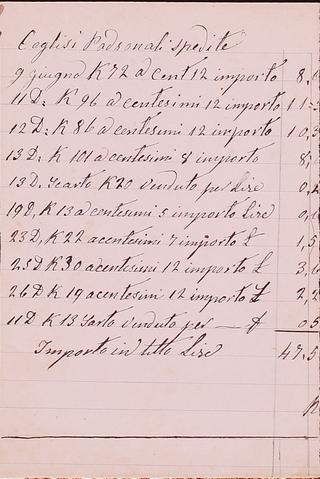 Padronali spedite
9 giugno K 72 a Cent 12 importo 8,
11 D: K 96 a centesimi 12 importo 11
12 D: K 86 a centesimi 12 importo 10,3
13 D: K 101 a centesimi 8 importo 8,
13 D. Scarto K 20 venduto per Lire 0,
19 D, K 13 a centesimi 5 importo Lire 0,
23 D, K 22 a centesimi 7 importo £ 1,5
25 D K 30 a centesimi 12 importo £ 3,6
26 D K 19 a centesimi 12 importo £ 2,2
11 D K 13 Scarto venduto per — £ 0 5
Importo in tutto Lire 47.5